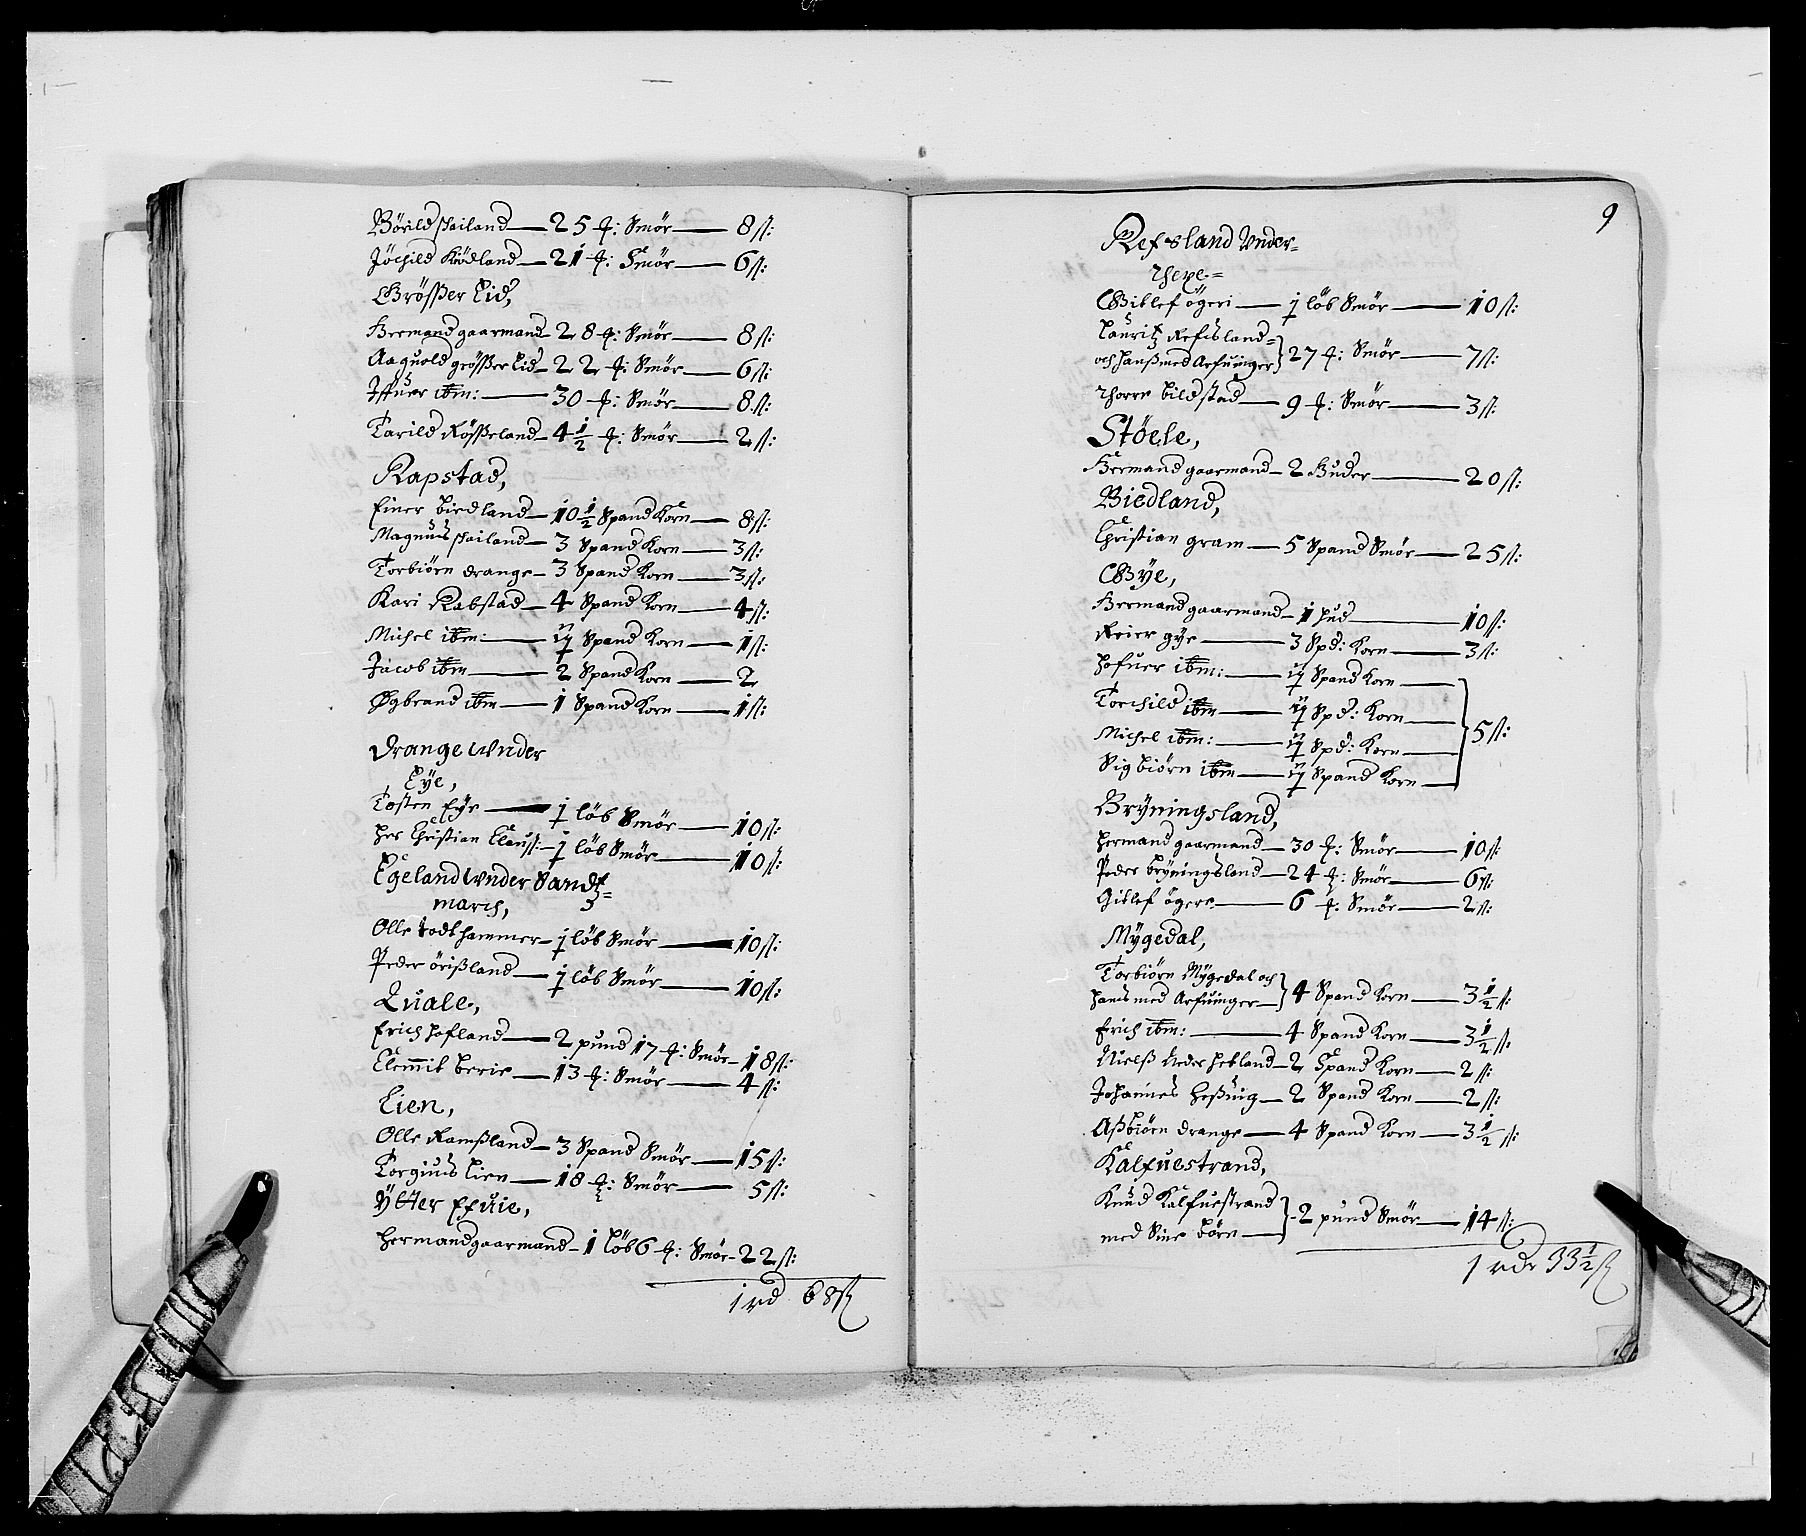 Börild Hailand — 25 ₰: Smör — 8 ſſ:
Jöchild Knödland — 21 ₰: Smör — 6 ſſ:
Größer Lid,
Hermand gaarmand — 28 ₰: Smör — 8 ſſ:
Aaguold größer Lid — 22 ₰: Smör — 6 ſſ:
Iffuer ibm: — 30 ₰: Smör — 8 ſſ:
Tarild Rößeland — 4 1/2 ₰: Smör — 2 ſſ:
Rapstad,
Einer Birdland — 10 1/2 Spand Korn — 8 ſſ:
Magnus Hailand — 3 Spand Korn — 3 ſſ:
Torbiörn drange — 3 Spand Korn — 3 ſſ:
Kari Rabstad — 4 Spand Korn — 4 ſſ:
Michel ibm: — 1 Spand Korn — 1 ſſ:
Jacob ibm — 2 Spand Korn — 2
Øgbrand ibm — 1 Spand Korn — 1 ſſ:
Drange Vnder
Eÿe,
Tosten Eÿe — 1 löb Smör — 10 ſſ:
her Christian Clauſſ: — 1 löb Smör — 10 ſſ:
Egeland Vnder Sandt=
march,
Olle todthammer — 1 löb Smör — 10 ſſ:
Peder örißland — 1 löb Smör — 10 ſſ:
Quale,
Erich hofland — 2 pund 17 ₰: Smör — 18 ſſ:
Clemmit berie — 13 ₰: Smör — 4 ſſ:
Lien,
Olle Ramßland — 3 Spand Smör — 15 ſſ:
Torgius Lien — 18 ₰: Smör — 5 ſſ:
Ÿtter Efuie,
Hermand gaarmand — 1 Löb 6 ₰: Smör — 22 ſſ:
1 rd 68 ſſ
9
Refsland Vnder=
Thexe=
Gitlef ögeri — 1 löb Smör — 10 ſſ:
Lauritz Refsland=
och hanß med Arfuinger — 27 ₰: Smör — 7 ſſ:
Thorre bildstad — 9 ₰: Smör — 3 ſſ:
Stöele,
Hermand gaarmand — 2 Huder — 20 ſſ:
Biedland,
Christian gram — 5 Spand Smör — 25 ſſ:
Gÿe,
Hermand gaarmand — 1 hud — 10 ſſ:
Reier gÿe — 3 Spd: Korn — 3 ſſ:
hofuer ibm: — 1 Spand Korn —
Torchild ibm — 1 Spd: Korn —
Michel ibm: — 1 Spd: Korn — 5 ſſ:
Sigbiörn ibm — 1 Spand Korn —
Brÿningsland,
Hermand gaarmand — 30 ₰: Smör — 10 ſſ:
Peder brÿningsland — 24 ₰: Smör — 6 ſſ:
Gitlef ögere — 6 ₰: Smör — 2 ſſ:
Mÿgedal,
Torbiörn Mÿgedal och
hans med Arfuinger — 4 Spand Korn — 3 1/2 ſſ:
Erich ibm: — 4 Spand Korn — 3 1/2 ſſ:
Nielß Neder hetland — 2 Spand Korn — 2 ſſ:
Johannes heßuig — 2 Spand Korn — 2 ſſ:
Aßbiörn drange — 4 Spand Korn — 3 1/2 ſſ:
Kalfuestrand,
Knud Kalfuestrand
med Sine börn — 2 pund Smör — 14 ſſ:
1 rdr 33 1/2 ſſ